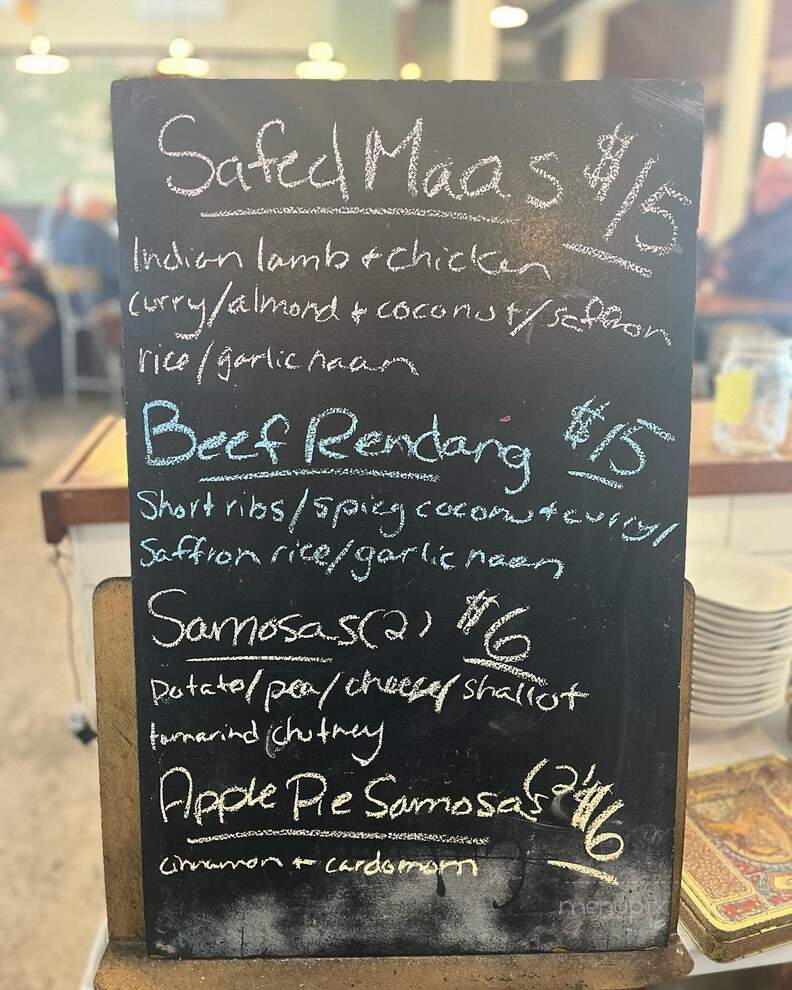 Safed Maas $15
Indian lamb + chicken
curry/almond + coconut/saffron
rice/garlic naan
Beef Rendang $15
Short ribs/spicy coconut curry/
Saffron rice/garlic naan
Samosas(2) $6
Potato/pea/cheese/shallot
tamarind chutney
Apple Pie Samosas (2) $6
cinnamon + cardamom
menupix